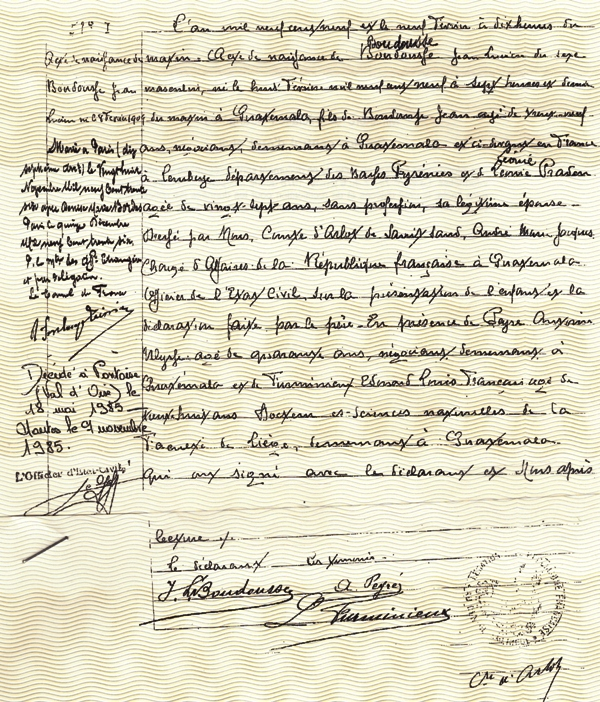 L'an mil neuf cent neuf et le neuf Février à dix heures du
matin. Acte de naissance de Boudousse Jean Lucien du sexe
Boudousse
masculin, né le huit Février mil neuf cent neuf à sept heures et demie
du matin à Guatemala, fils de Boudousse Jean agé de trente-neuf
ans, négociant, demeurant à Guatemala et ci-devant en France
à Lembeye département des Basses Pyrénées et d Léonie Pradon
agée de vingt sept ans, sans profession, sa légitime épouse.
Dressé par Nous, Comte d'Arlot de Saint Saud, André Marc Jacques
Chargé d'Affaires de la République française à Guatemala
Officier de l'Etat Civil, sur la présentation de l'enfant et la
déclaration faite par le père. En présence de Peyré Antonin
Ulysse agé de quarante ans, négociant demeurant à
Guatémala et de Turminieux Edmond Louis François agé de
ans Docteur es-Sciences naturelles de la
de Liège, demeurant à Guatemala.
Qui ont signé avec le déclarant et Nous après
lecture ./.
Le déclarant Les témoins
J. Boudousse A. Peyré
Turminieux
Cte d'Arlot
Acte de naissance de
Boudousse Jean
Lucien né 8 Février 1909
Marié à Paris (dix
septième arrt) le vingt huit
Novembre Mil neuf cent trente
six avec Marie Bordes
Paris le quinze Décembre
Mil neuf cent trente six
P. le Mtre des Aff. Etrangères
et par délégation
Décédé à Pontoise
(Val d'Oise) le
18 mai 1985
Nantes le 9 novembre
1985.
L'Officier d'Etat-Civil